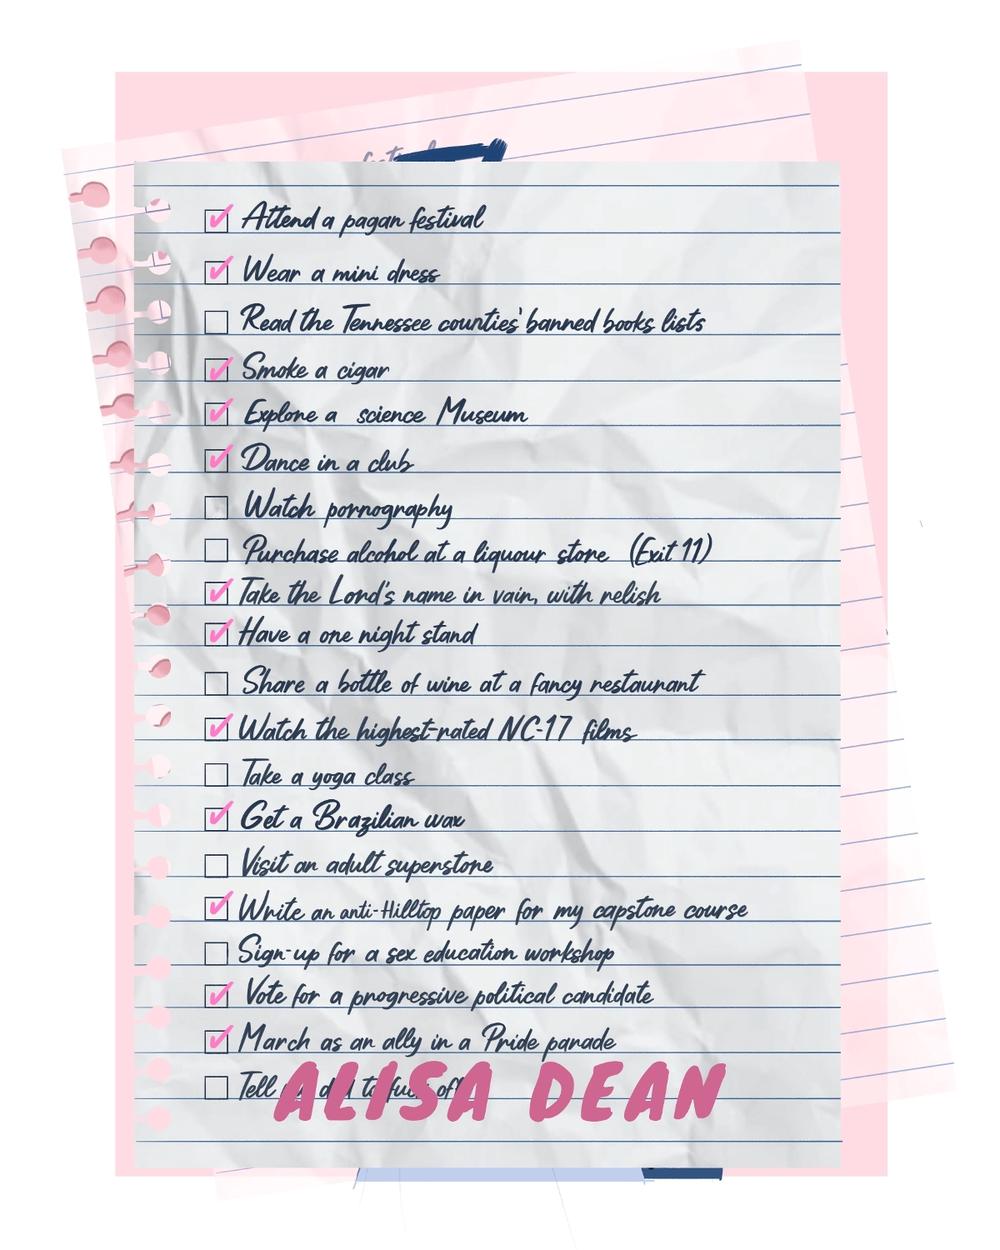 Attend a pagan festival
Wear a mini dress
Read the Tennessee counties' banned books lists
Smoke a cigar
Explore a science Museum
Dance in a club
Watch pornography
Purchase alcohol at a liquour store (Exit 11)
Take the Lord's name in vain, with relish
Have a one night stand
Share a bottle of wine at a fancy restaurant
Watch the highest-rated NC-17 films
Take a yoga class
Get a Brazilian wax
Visit an adult superstore
Write an anti-Hilltop paper for my capstone course
Sign-up for a sex education workshop
Vote for a progressive political candidate
March as an ally in a Pride parade
Tell dad to fuck off
ALISA DEAN